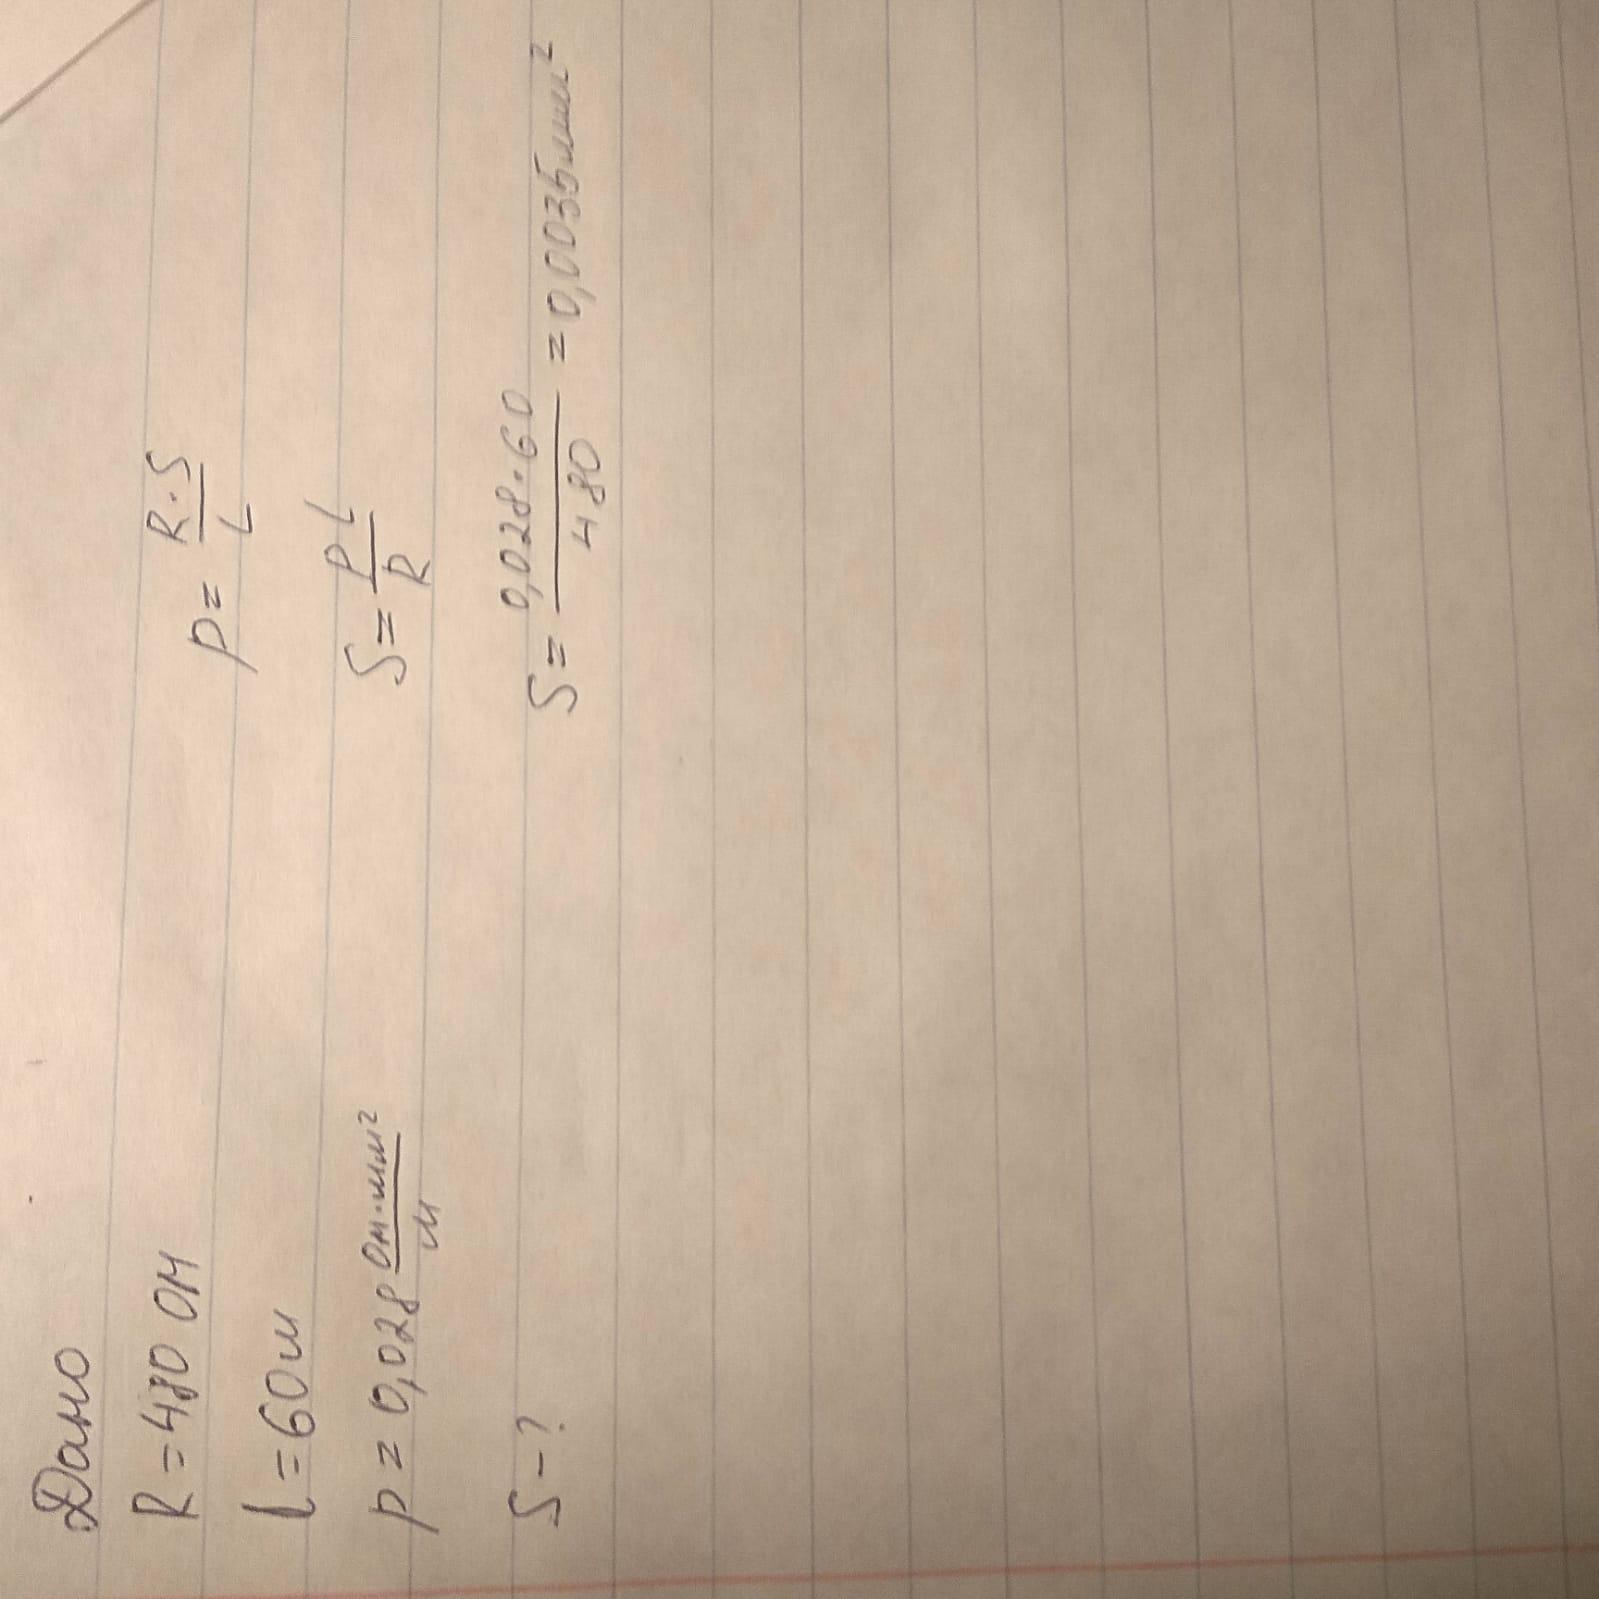 Дано
R = 480 Ом
l = 60 м
р = 0,028 Ом·мм²/м
S - ?
р = R·S/L
S = рL/R
S = 0,028·60/480 = 0,0035 мм²